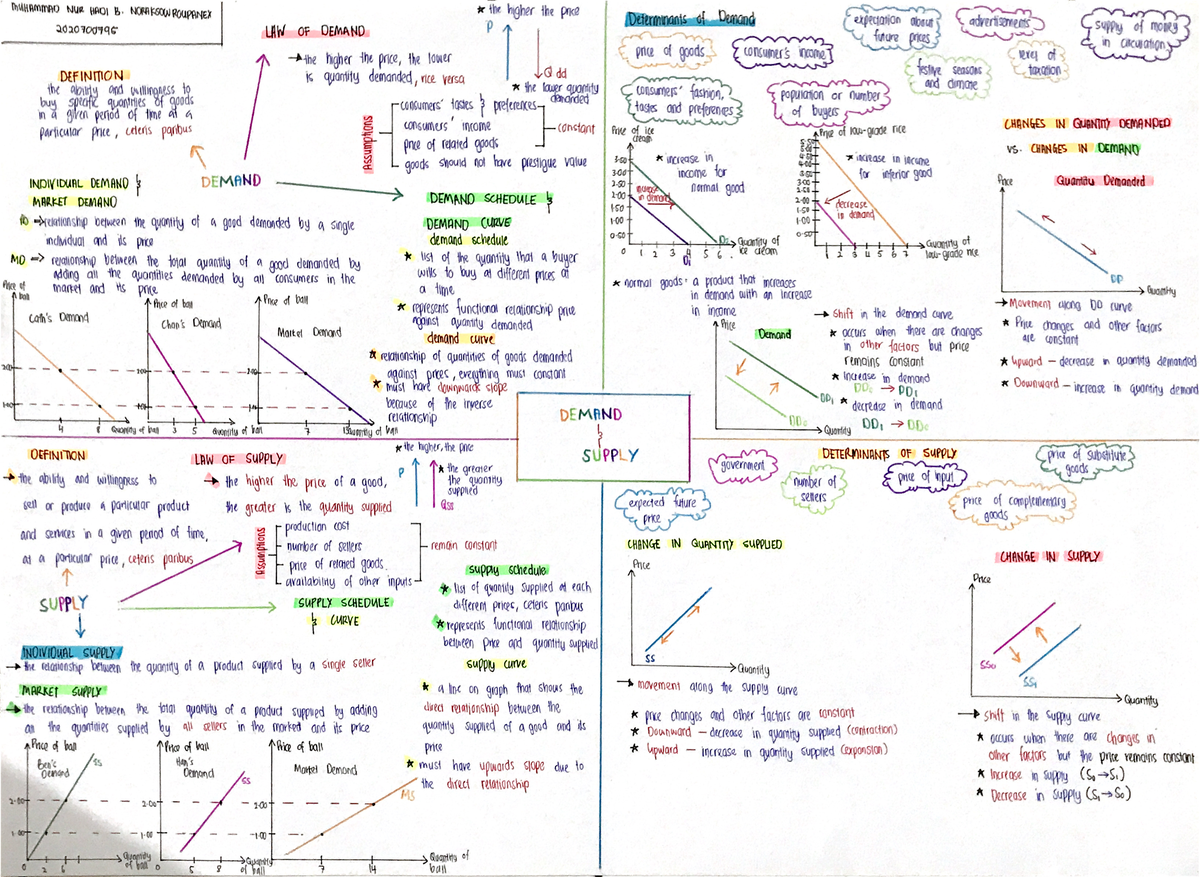 MUHAMMAD NUR HADI B. NORIKSON ROUPANEX
2020700795
LAW OF DEMAND
→ the higher the price, the lower
is quantity demanded, vice versa
* the higher the price
P
Q dd
* the lower quantity
demanded
DEFINITION
the ability and willingness to
buy specific quantities of goods
in a given period of time at a
particular price, ceteris paribus
Assumptions
consumers' tastes & preferences
consumers' income
price of related goods
goods should not have prestigue value
constant
DEMAND
INDIVIDUAL DEMAND &
MARKET DEMAND
ID → relationship between the quantity of a good demanded by a single
individual and its price
MD → relationship between the total quantity of a good demanded by
adding all the quantities demanded by all consumers in the
market and its price
Price of
ball
Cath's Demand
4
8
Quantity of ball
Price of ball
Chan's Demand
3
5
Quantity of ball
Price of ball
Market Demand
7
13
Quantity of ball
DEMAND SCHEDULE &
DEMAND CURVE
demand schedule
* list of the quantity that a buyer
wills to buy at different prices at
a time
* represents functional relationship price
against quantity demanded
demand curve
* relationship of quantities of goods demanded
against prices, everything must constant
* must have downwards slope
because of the inverse
relationship
Determinants of Demand
price of goods
consumer's income
expectation about
future prices
advertisements
supply of money
in circulation
level of
taxation
festive seasons
and climate
consumers' fashion,
tastes and preferences
population or number
of buyers
Price of ice
cream
3.50
3.00
2.00
1.50
1.00
0.50
0 1 2 3 4 5 6
* increase in
income for
normal good
increase
in demand
Quantity of
ice cream
Price of low-grade rice
5.50
5.00
4.50
4.00
3.50
3.00
2.50
2.00
1.50
1.00
0.50
1 2 3 4 5 6 7
* increase in income
for inferior good
decrease
in demand
Quantity of
low-grade rice
* normal goods: a product that increases
in demand with an increase
in income
Price
Demand
DD₁
DD₀
Quantity
→ Shift in the demand curve
* occurs when there are changes
in other factors but price
remains constant
* Increase in demand
DD₀ → DD₁
* decrease in demand
DD₁ → DD₀
CHANGES IN QUANTITY DEMANDED
VS. CHANGES IN DEMAND
Quantity Demanded
Price
DD
Quantity
→ Movement along DD curve
* Price changes and other factors
are constant
* Upward — decrease in quantity demanded
* Downward — increase in quantity demand
DEMAND
&
SUPPLY
DEFINITION
→ the ability and willingness to
sell or produce a particular product
and services in a given period of time,
at a particular price, ceteris paribus
LAW OF SUPPLY
→ the higher the price of a good,
the greater is the quantity supplied
* the higher, the price
P
* the greater
the quantity
supplied
Qss
Assumptions
production cost
number of sellers
price of related goods
availability of other inputs
remain constant
SUPPLY
SUPPLY SCHEDULE
& CURVE
supply schedule
* list of quantity supplied at each
different prices, ceteris paribus
* represents functional relationship
between price and quantity supplied
supply curve
* a line on graph that shows the
direct relationship between the
quantity supplied of a good and its
price
* must have upwards slope due to
the direct relationship
INDIVIDUAL SUPPLY
→ the relationship between the quantity of a product supplied by a single seller
MARKET SUPPLY
→ the relationship between the total quantity of a product supplied by adding
all the quantities supplied by all sellers in the marked and its price
Price of ball
Ben's
Demand
SS
2.00
1.00
0 2 6
Quantity
of ball
Price of ball
Demand
SS
2.00
1.00
0 5 8
Quantity
of ball
Price of ball
Market Demand
MS
2.00
1.00
7
14
Quantity of
ball
DETERMINANTS OF SUPPLY
government
number of
sellers
price of input
price of substitute
goods
expected future
price
price of complementary
goods
CHANGE IN QUANTITY SUPPLIED
Price
SS
Quantity
→ movement along the supply curve
* price changes and other factors are constant
* Downward — decrease in quantity supplied (contraction)
* Upward — increase in quantity supplied (expansion)
CHANGE IN SUPPLY
Price
SS₀
SS₁
Quantity
→ Shift in the supply curve
* occurs when there are changes in
other factors but the price remains constant
* Increase in supply (S₀→S₁)
* Decrease in supply (S₁→S₀)